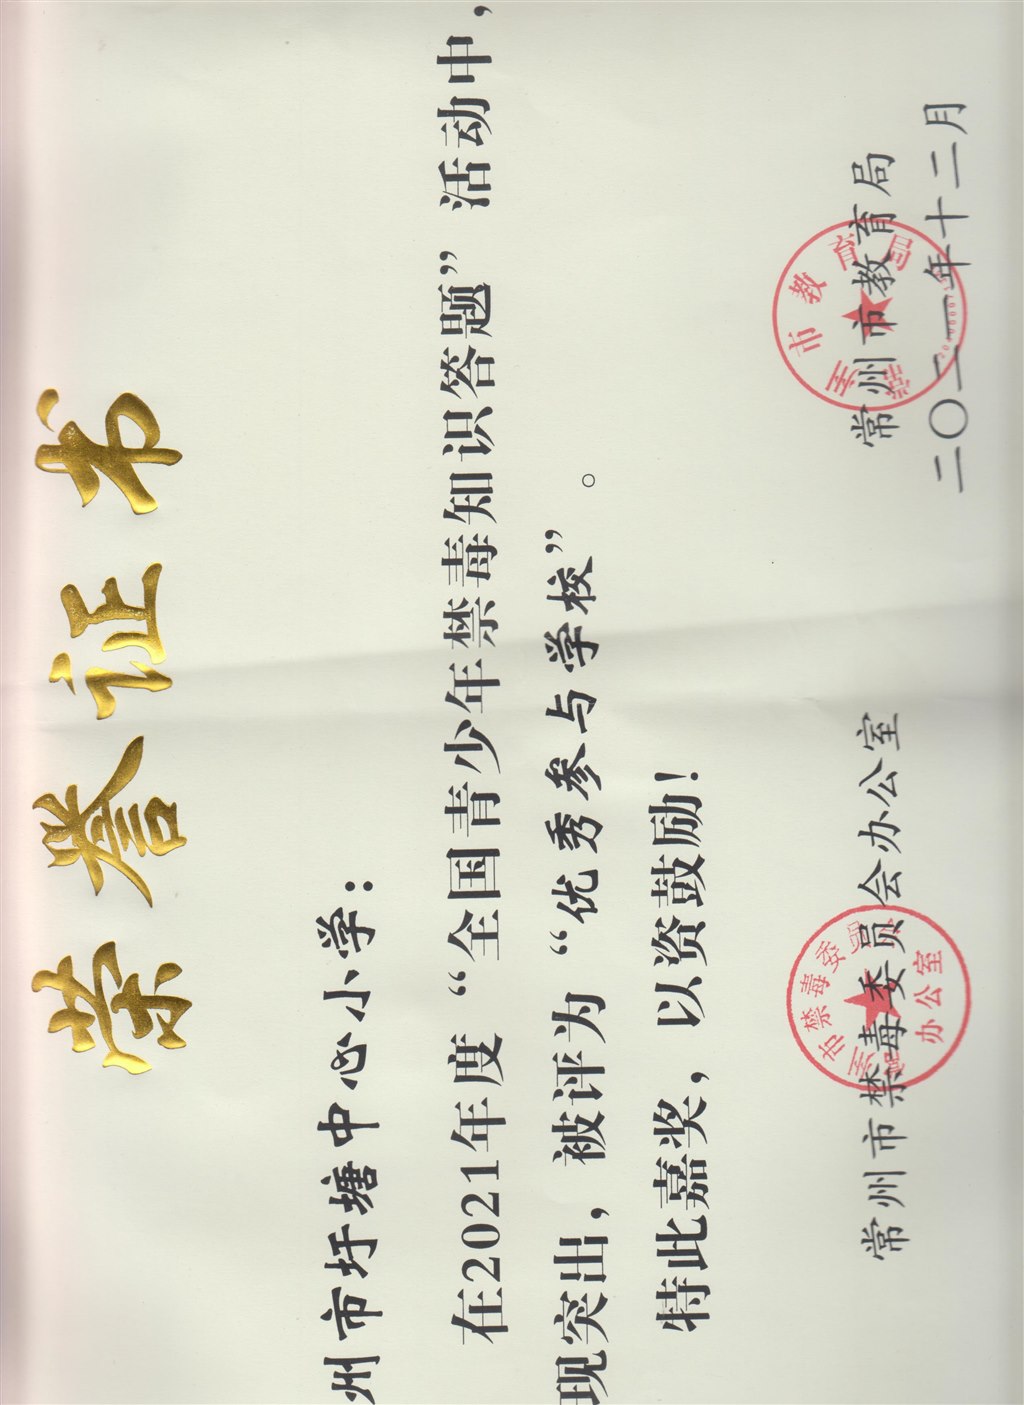 荣誉证书
州市圩塘中心小学：
在2021年度“全国青少年禁毒知识答题”活动中，
现突出，被评为“优秀参与学校”。
特此嘉奖，以资鼓励！
常州市禁毒委员会办公室
常州市教育局
二〇二一年十二月
常州市禁毒委员会
办公室
常州市教育局